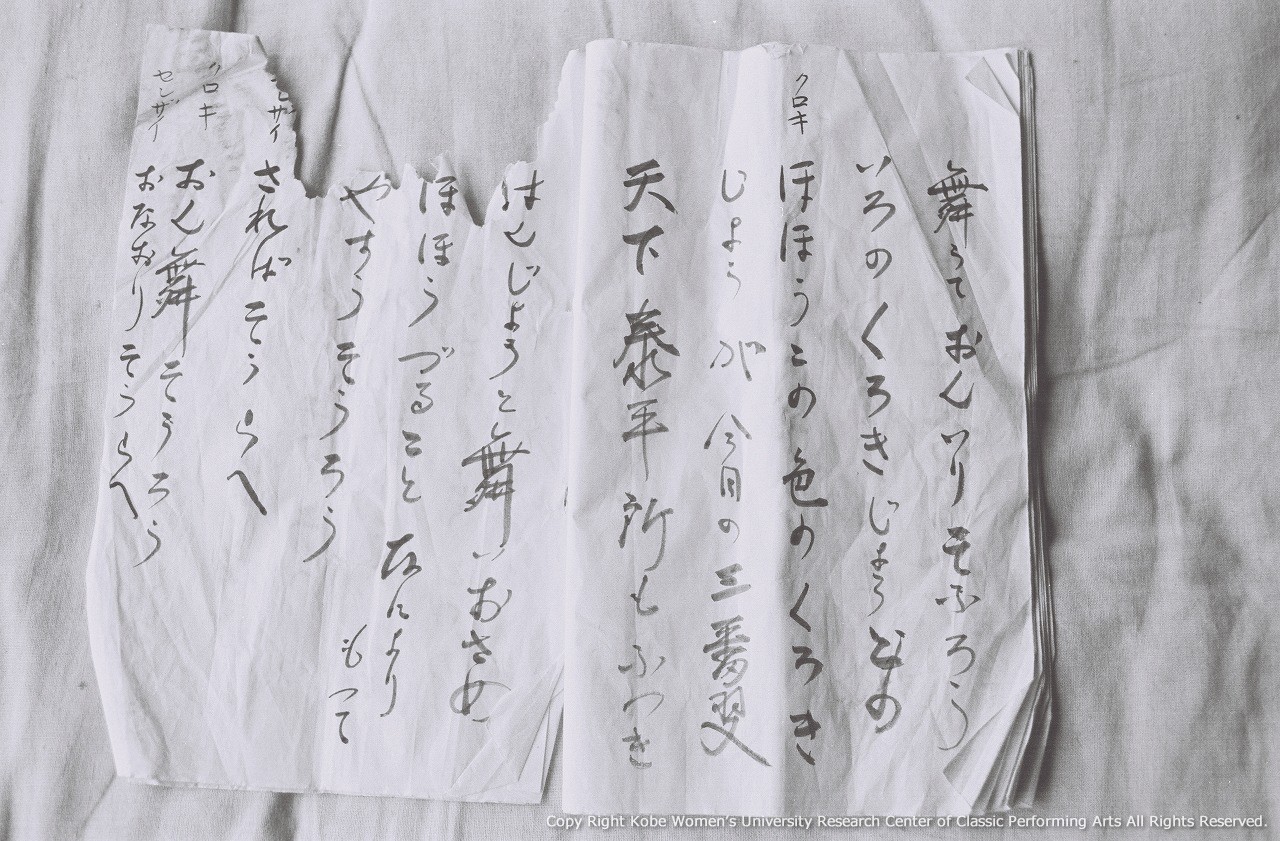 舞うておんいりそふろう
いろのくろきじょうどの
クロキ
ほほうこの色のくろき
じようが今日の三番叟
天下泰平所もふつき
はんじようと舞いおさめ
ほほうづることなによりもつて
やすうそうろう
さればそうらへ
クロキ
おん舞そうろう
センザイ
おなおりそうらへ
Copy Right Kobe Women's University Research Center of Classic Performing Arts All Rights Reserved.